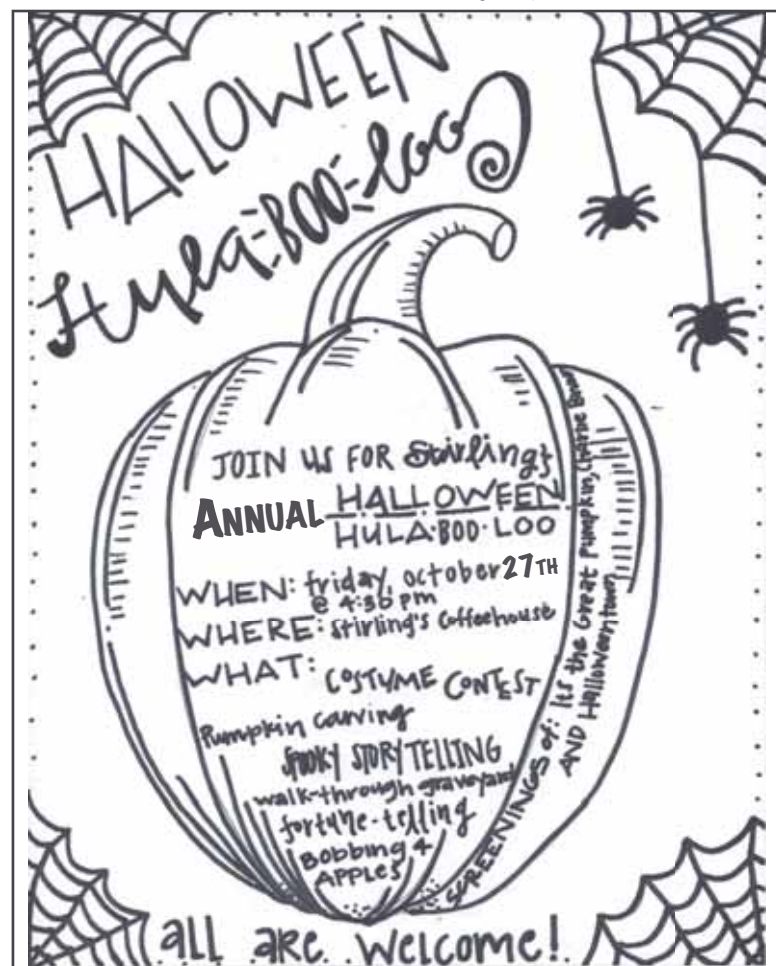 HALLOWEEN
Hula·BOO·loo
JOIN US FOR Stirling's
ANNUAL HALLOWEEN
HULA·BOO·LOO
WHEN: friday, october 27TH
@ 4:30 pm
WHERE: Stirling's Coffeehouse
WHAT: COSTUME CONTEST
Pumpkin carving
SPOOKY STORYTELLING
walk-through graveyard
fortune-telling
Bobbing 4
APPLES
SCREENINGS of: Its the Great Pumpkin, Charlie Brown
AND Halloweentown
all are welcome!